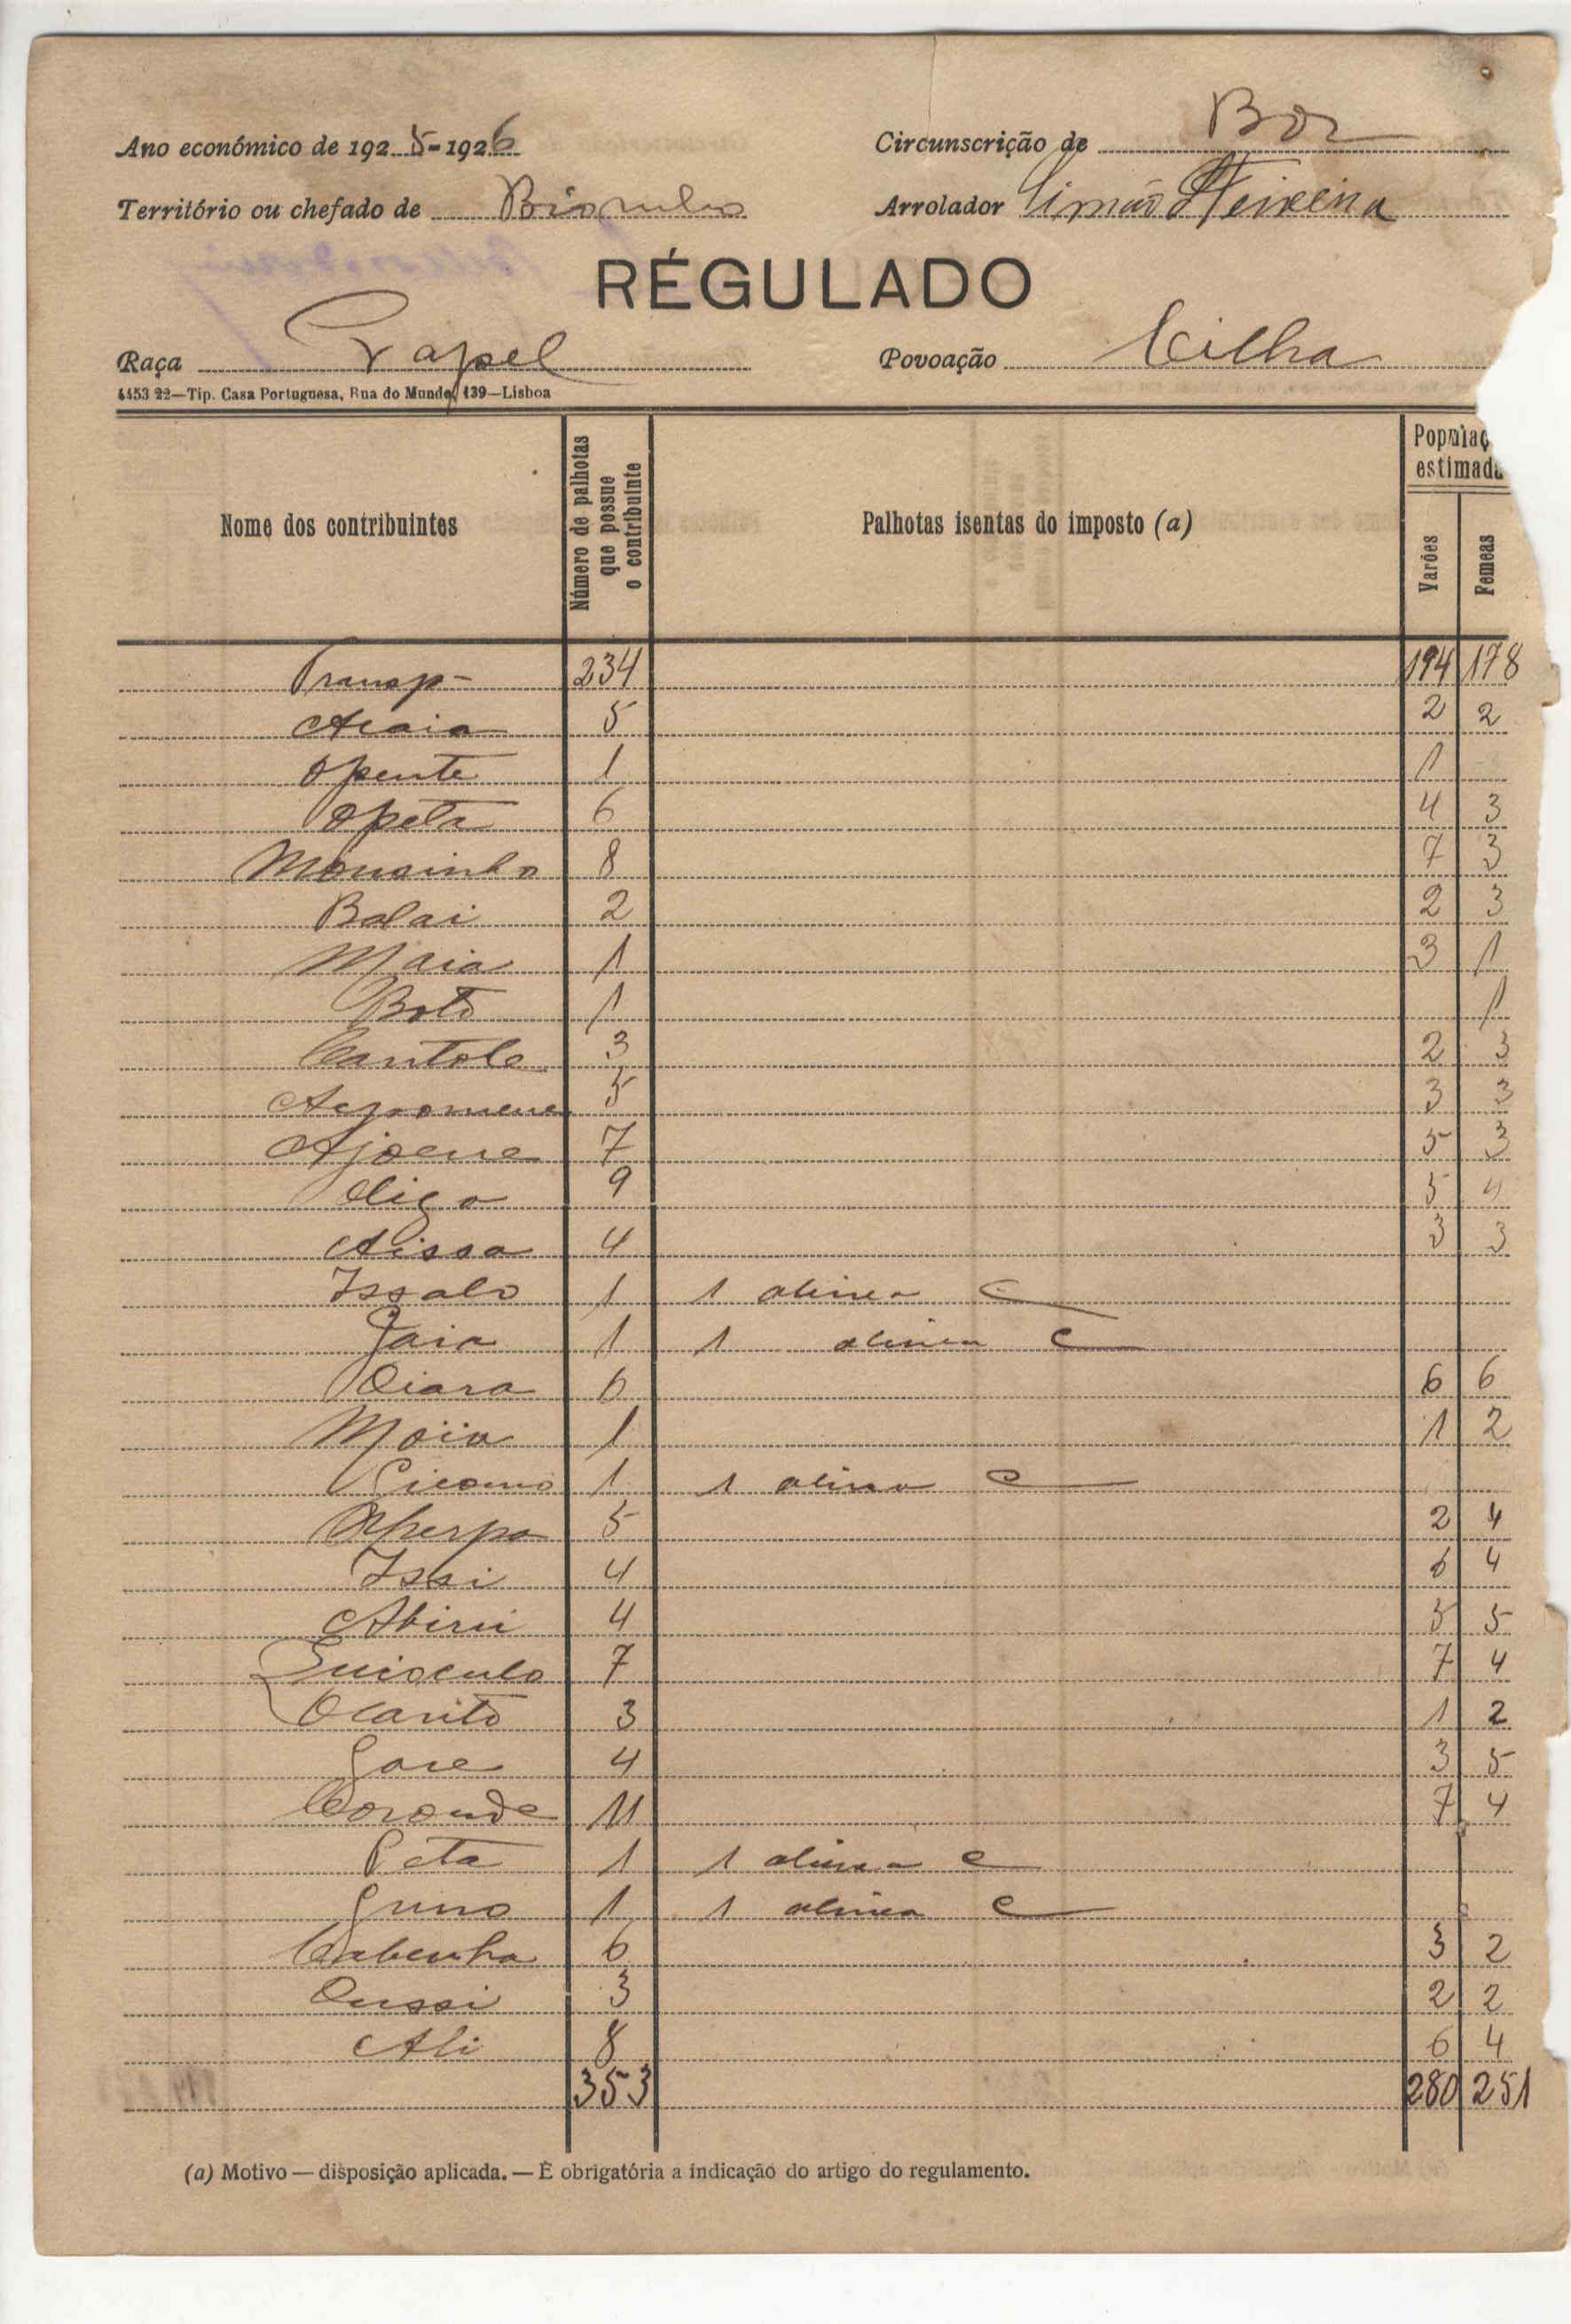 Ano económico de 1925-1926
Circunscrição de Bor
Território ou chefado de
Arrolador Simão Teixeira
RÉGULADO
Raça Papel
Povoação Cilha
4453 22—Tip. Casa Portuguesa, Rua do Mundo, 139—Lisboa
Nome dos contribuintes
Número de palhotas que possue o contribuinte
Palhotas isentas do imposto (a)
Populaç
estimada
Varões
Femeas
Transp- 234 194 178
5 2 2
Opente 1 1
Opeta 6 4 3
Mousinho 8 7 3
Balai 2 2 3
Maia 1 3 1
Boto 1 1
Cantole 3 2 3
5 3 3
Ajoene 7 5 3
9 5 4
Aissa 4 3 3
Issalo 1 1 alinea C
Jaia 1 1 alinea C
Diara 6 6 6
Maia 1 1 2
1 1 alinea C
5 2 4
Issi 4 6 4
4 5 5
7 7 4
Ocanto 3 1 2
4 3 5
Coronde 11 7 4
Peta 1 1 alinea C
1 1 alinea C
Cabenha 6 3 2
Dussi 3 2 2
Ali 8 6 4
353 280 251
(a) Motivo — disposição aplicada. — É obrigatória a indicação do artigo do regulamento.